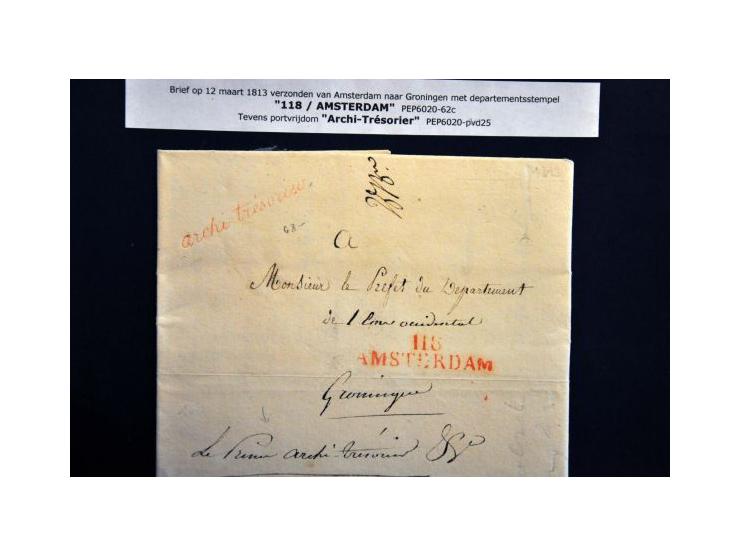 Brief op 12 maart 1813 verzonden van Amsterdam naar Groningen met departementsstempel
"118 / AMSTERDAM" PEP6020-62c
Tevens portvrijdom "Archi-Trésorier" PEP6020-pvd25
archi-trésorier
68-
A
Monsieur le Préfet du Département
de l'Ems occidental
118
AMSTERDAM
Groningue
Le Prince archi-trésorier